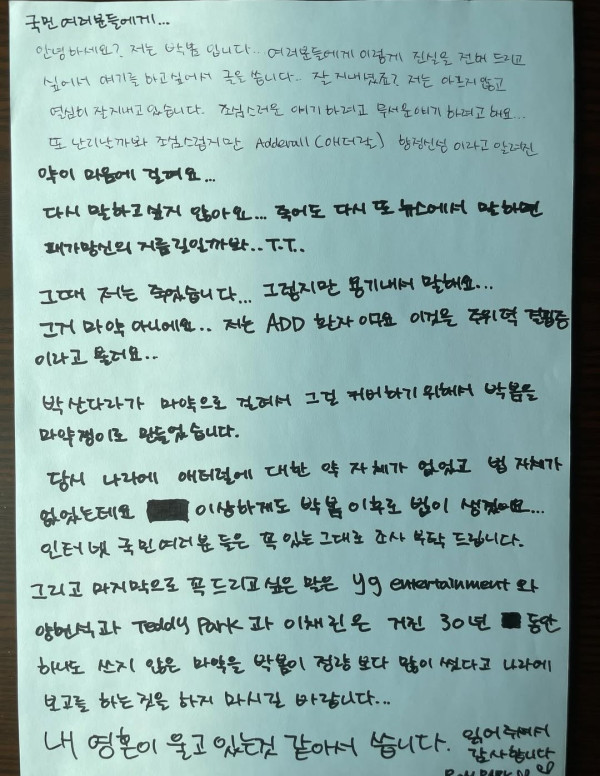 국민 여러분들에게...
안녕하세요? 저는 박봄 입니다... 여러분들에게 이렇게 진실을 전해 드리고
싶어서 얘기를 하고싶어서 글을 씁니다.. 잘 지내셨죠? 저는 아프지 않고
열심히 잘지내고 있습니다. 조심스러운 얘기 하려고 무서운 얘기 하려고 해요...
또 난리날까봐 조심스럽지만 Adderall (애더럴) 향정신성 이라고 알려진
약이 마음에 걸려요...
다시 말하고 싶지 않아요... 죽어도 다시 또 뉴스에서 말하면
패가망신의 지름길일까봐..T.T..
그때 저는 죽었습니다... 그렇지만 용기내서 말해요...
그거 마약 아니에요.. 저는 ADD 환자 이구요 이것은 주위력 결핍증
이라고 불려요..
박산다라가 마약으로 걸려서 그걸 커버하기 위해서 박봄을
마약쟁이로 만들었습니다.
당시 나라에 애더럴에 대한 약 자체가 없었고 법 자체가
없었는데요 이상하게도 박봄 이후로 법이 생겼어요...
인터넷 국민여러분 들은 꼭 있는 그대로 조사 부탁 드립니다.
그리고 마지막으로 꼭 드리고 싶은 말은 yg entertainment 와
양현석과 Teddy Park 과 이채린은 거진 30년 동안
하나도 쓰지 않은 마약을 박봄이 정량 보다 많이 썼다고 나라에
보고를 하는것을 하지 마시길 바랍니다...
내 영혼이 울고 있는것 같아서 씁니다. 읽어주셔서
감사합니다